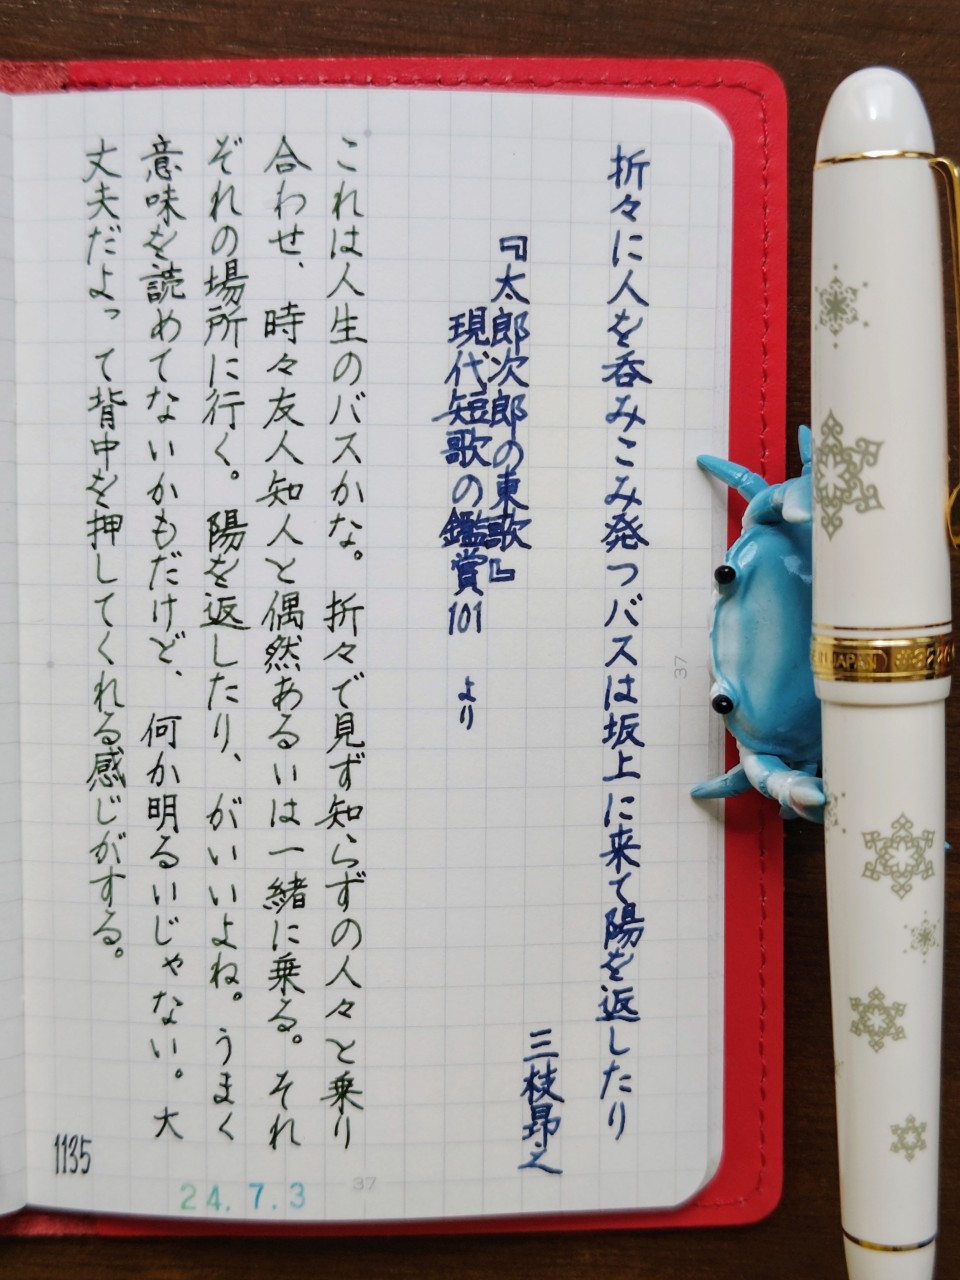 折々に人を呑みこみ発つバスは坂上に来て陽を返したり
三枝昂之
『太郎次郎の東歌』
現代短歌の鑑賞101 より
これは人生のバスかな。折々で見ず知らずの人々と乗り
合わせ、時々友人知人と偶然あるいは一緒に乗る。それ
ぞれの場所に行く。陽を返したり、がいいよね。うまく
意味を読めてないかもだけど、何か明るいじゃない。大
丈夫だよって背中を押してくれる感じがする。
1135
24.7.3
37
37